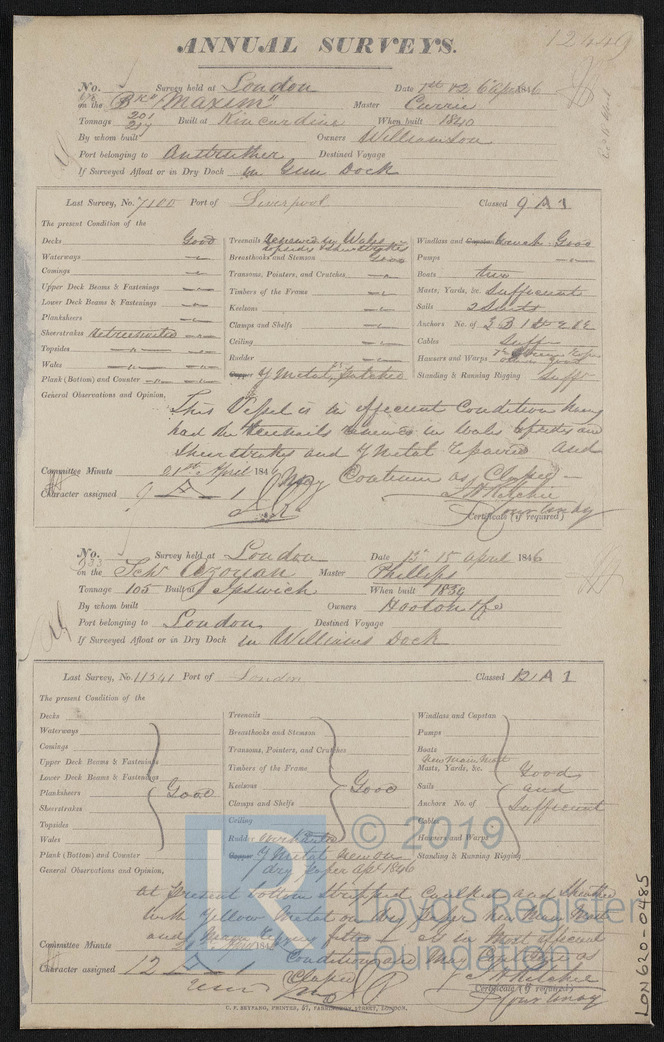 12449
ANNUAL SURVEYS.
No. Survey held at London Date 1st 02 6 Apr 1846
on the Bk "Maxim" Master Currie
Tonnage 201 217 Built at Kincardine When built 1840
By whom built Owners Williamson
Port belonging to Anstruther Destined Voyage
If Surveyed Afloat or in Dry Dock in Gun Dock
Last Survey, No. 7100 Port of Liverpool Classed 9 A 1
The present Condition of the
Decks Good
Waterways
Comings
Upper Deck Beams & Fastenings
Lower Deck Beams & Fastenings
Plansheers
Sheerstrakes
Topsides
Wales
Plank (Bottom) and Counter
Treenails Renewed in Wales
topsides & Sheerstrakes
Breasthooks and Stemson Good
Transoms, Pointers, and Crutches
Timbers of the Frame
Keelsons
Clamps and Shelfs
Ceiling
Rudder
Copper Y Metal, Patched
Windlass and Capstan Good
Pumps
Boats two
Masts, Yards, &c. Sufficient
Sails 2 Suits
Anchors No. of 3 B 1 St 2 KE
Cables Suff
Hawsers and Warps
Standing & Running Rigging Suff
General Observations and Opinion,
This Vessel is in efficient Condition having
had the treenails renewed in Wales topsides and
Sheerstrakes and Y Metal repaired and
Committee Minute 21st April 1846 May Continue as Classed
Character assigned 9 A 1
J. H. Ritchie
Certificate (if required)
P. Courtenay
No. Survey held at London Date 13th 15 April 1846
933
on the Schr Azorian Master Phillips
Tonnage 105 Built at Ipswich When built 1839
By whom built Owners Hooton & Co
Port belonging to London Destined Voyage
If Surveyed Afloat or in Dry Dock in Williams Dock
Last Survey, No. 11341 Port of London Classed 12 A 1
The present Condition of the
Decks
Waterways
Comings
Upper Deck Beams & Fastenings
Lower Deck Beams & Fastenings
Plansheers Good
Sheerstrakes
Topsides
Wales
Plank (Bottom) and Counter
Treenails
Breasthooks and Stemson
Transoms, Pointers, and Crutches
Timbers of the Frame
Keelsons Good
Clamps and Shelfs
Ceiling
Rudder
Copper Y Metal new on
dry paper Apl 1846
Windlass and Capstan
Pumps
Boats
New Main Mast
Masts, Yards, &c. Good
Sails and
Anchors No. of Sufficient
Cables
Hawsers and Warps
Standing & Running Rigging
General Observations and Opinion,
At present bottom Stripped Caulked and Sheathed
with Yellow Metal on dry paper New Main Mast
and fitted is in Most efficient
Committee Minute 184 Condition and May Continue as
Character assigned 12 A 1 Classed
J. H. Ritchie
Certificate (if required)
P. Courtenay
C. F. SEYFANG, PRINTED, 57, FARRINGDON STREET, LONDON.
LR
© 2019
Lloyd's Register
Foundation
LON620-0485